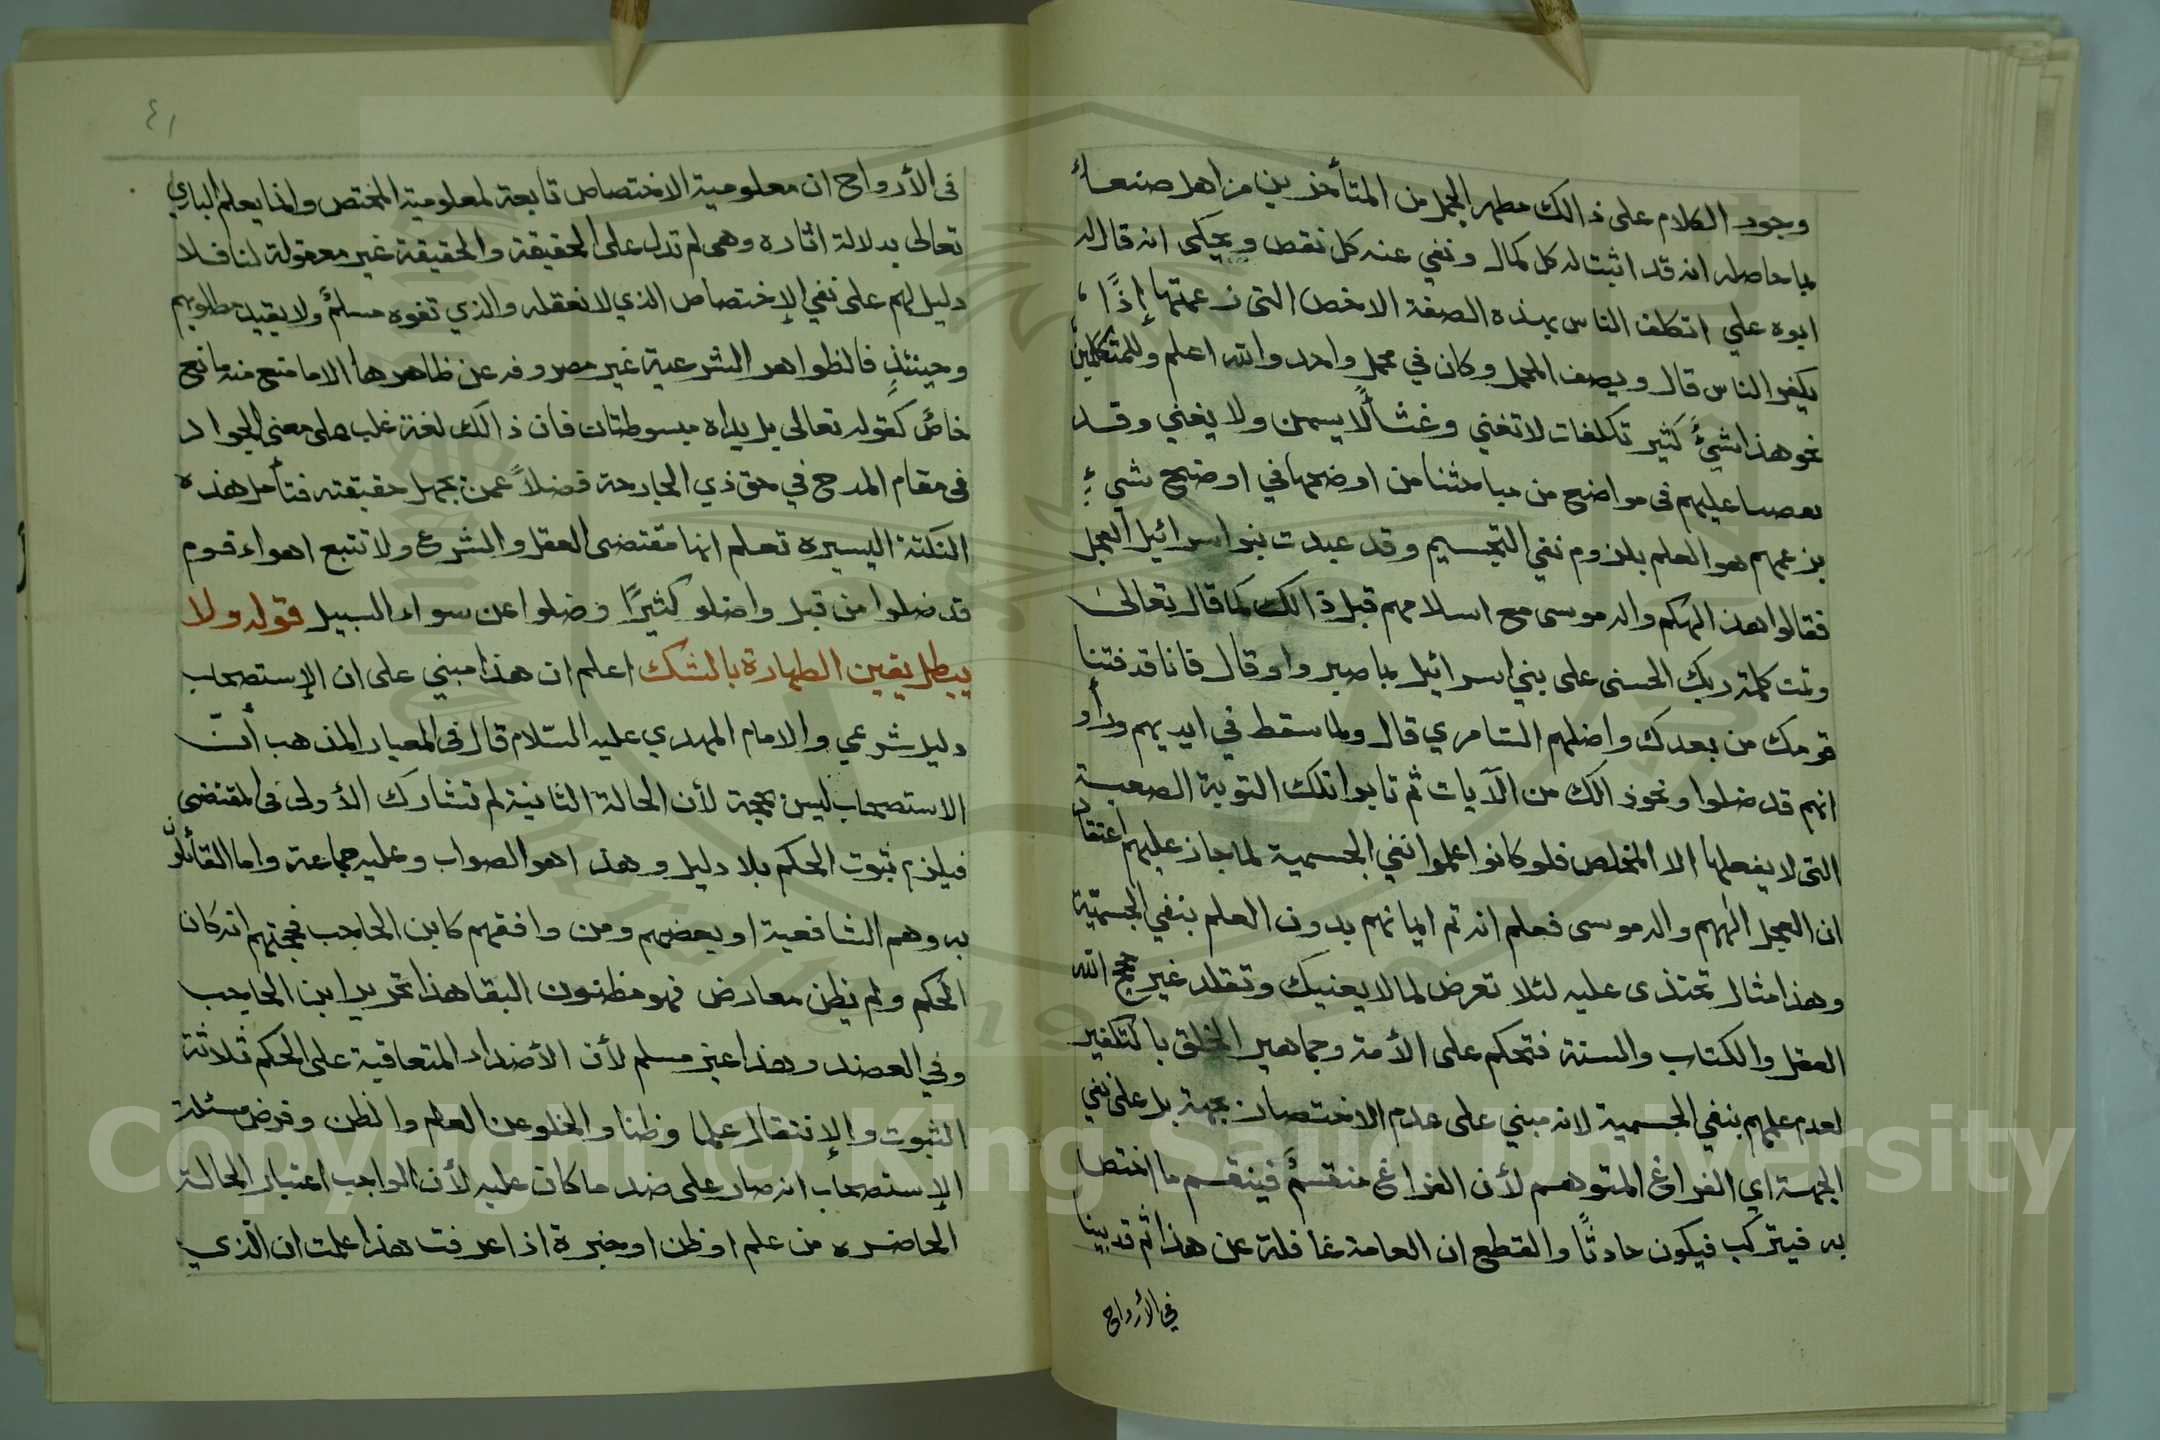 وجود الكلام على ذالك مطهر الجمل من المتأخرين من اهل صنعاء
بما حاصله انه قد اثبت له كل كمال ونفي عنه كل نقص ويحكى انه قال له
ابوه علي اتكلف الناس بهذه الصفة الاخص التي زعمتها إذًا،
يكفر الناس قال ويصف المحمل وكان في محمل واحد والله اعلم وللمتكلمين
نحو هذا شيءٌ كثير تكلفات لا تغني وغثأ لا يسمن ولا يغني وقد
عليهم في مواضع من مباحثنا من اوضحها في اوضح شيءٍ
بزعمهم هو العلم بلزوم نفي التجسيم وقد عبدت بنو اسرائيل العجل
فقالوا هذا الهكم واله موسى مع اسلامهم قبل ذالك كما قال تعالى
وتمت كلمة ربك الحسنى على بني اسرائيل بما صبروا وقال فانا قد فتنا
قومك من بعدك واضلهم السامري قال ولما سقط في ايديهم ورأو
انهم قد ضلوا ونحو ذالك من الآيات ثم تابوا تلك التوبة الصعبة
التي لا يفعلها الا المخلص فلو كانوا علموا نفي الجسمية لما جاز عليهم اعتقاد
ان العجل الههم واله موسى فعلم انه تم ايمانهم بدون العلم بنفي الجسميّة
وهذا مثال تحتذى عليه لئلا تعرض لما لا يعنيك وتقلد غير حجج الله
العقل والكتاب والسنة فتحكم على الأمة وجماهير الخلق بالتكفير
لعدم علمهم بنفي الجسمية لانه مبني على عدم الاختصاص بجهة بل على نفي
الجهة اي الفراغ المتوهم لأن الفراغ منقسمٌ فينقسم ما اختص
به فيتركب فيكون حادثًا والقطع ان العامة غافلة عن هذا ثم قد بينا
في الأرواح
٤١
في الأرواح ان معلومية الاختصاص تابعة لمعلومية المختص وانما يعلم الباري
تعالى بدلالة اثاره وهي لم تدل على الحقيقة والحقيقة غير معقولة لنا فلا
دليل لهم على نفي الإختصاص الذي لا نعقله والذي نفوه مسلمٌ ولا يفيد مطلوبهم
وحينئذٍ فالظواهر الشرعية غير مصروفه عن ظاهرها الا ما منع منه مانع
خاصٌ كقوله تعالى بل يداه مبسوطتان فان ذالك لغة غلب على معنى الجواد
في مقام المدح في حق ذي الجارحة فضلاً عمن نجهل حقيقته فتأمل هذه
النكتة اليسيره تعلم انها مقتضى العقل والشرع ولا تتبع اهواء قوم
قد ضلوا من قبل واضلو كثيرًا وضلوا عن سواء السبيل قوله ولا
يبطل يقين الطهارة بالشك اعلم ان هذا مبني على ان الإستصحاب
دليل شرعي والامام المهدي عليه السّلام قال في المعيار المذهب أنّ
الاستصحاب ليس بحجة لأن الحالة الثانية لم تشارك الأولى في المقتضى
فيلزم ثبوت الحكم بلا دليل وهذا هو الصواب وعليه جماعة واما القائلون
به وهم الشافعية او بعضهم ومن وافقهم كابن الحاجب فحجتهم انه كان
الحكم ولم يظن معارض فهو مظنون البقا هذا تحرير ابن الحاجب
وفي العضد وهذا غير مسلم لأن الأضداد المتعاقبة على الحكم ثلاثة
الثبوت والإنتقال علما وظنا والخلو عن العلم والظن وفرض مسئلة
الإستصحاب انه صار على ضد ما كان عليه لأن الواجب اعتبار الحالة
الحاضره من علم او ظن او حيرة اذا عرفت هذا علمت ان الّذي
Copyright © King Saud University